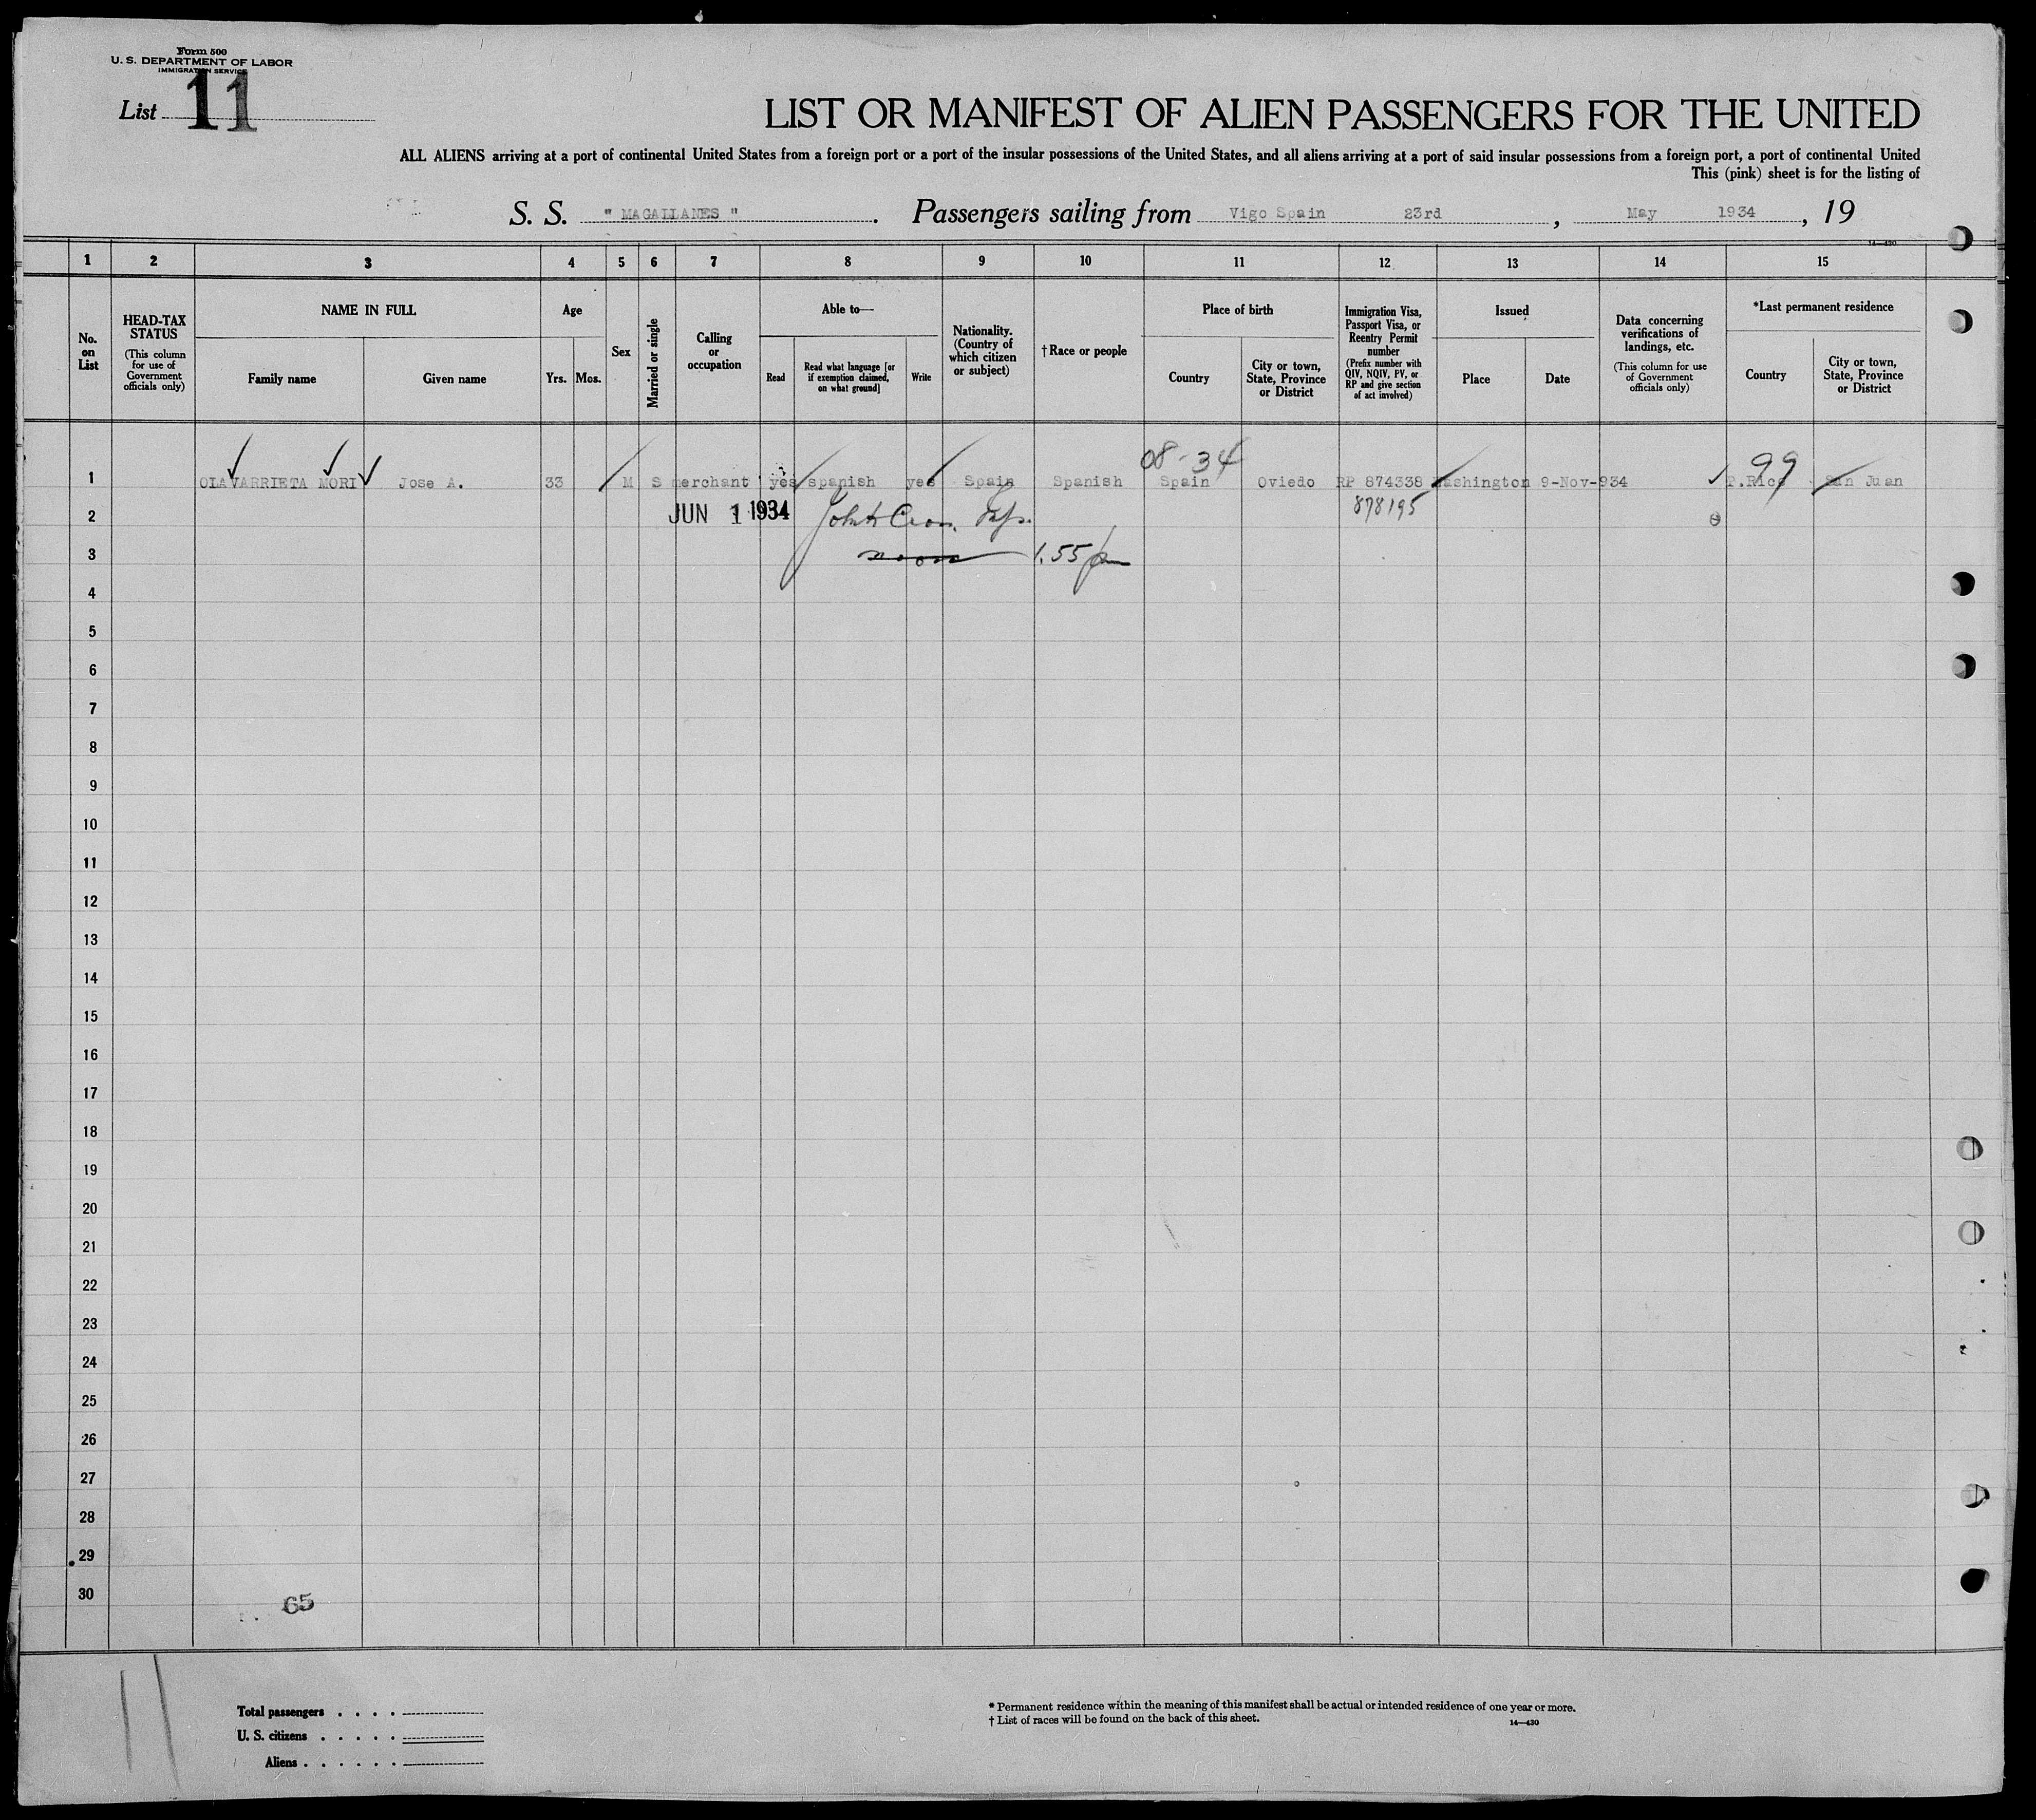 Form 500
U. S. DEPARTMENT OF LABOR
IMMIGRATION SERVICE
List 11
LIST OR MANIFEST OF ALIEN PASSENGERS FOR THE UNITED
ALL ALIENS arriving at a port of continental United States from a foreign port or a port of the insular possessions of the United States, and all aliens arriving at a port of said insular possessions from a foreign port, a port of continental United
This (pink) sheet is for the listing of
S. S. " MAGALLANES ". Passengers sailing from Vigo Spain 23rd, May 1934, 19
14—430
1 2 3 4 5 6 7 8 9 10 11 12 13 14 15
No. on List
HEAD-TAX STATUS
(This column for use of Government officials only)
NAME IN FULL
Family name
Given name
Age
Yrs.
Mos.
Sex
Married or single
Calling or occupation
Able to—
Read
Read what language [or if exemption claimed, on what ground]
Write
Nationality. (Country of which citizen or subject)
†Race or people
Place of birth
Country
City or town, State, Province or District
Immigration Visa, Passport Visa, or Reentry Permit number
(Prefix number with QIV, NQIV, PV, or RP and give section of act involved)
Issued
Place
Date
Data concerning verifications of landings, etc.
(This column for use of Government officials only)
*Last permanent residence
Country
City or town, State, Province or District
08-34 99
1 OLAVARRIETA MORI Jose A. 33 M S merchant yes spanish yes Spain Spanish Spain Oviedo RP 874338 Washington 9-Nov-934 P.Rico San Juan
2 JUN 1 1934 878195
3 noon 1.55 pm
4
5
6
7
8
9
10
11
12
13
14
15
16
17
18
19
20
21
22
23
24
25
26
27
28
29
30
65
11
Total passengers . . . .
U. S. citizens . . . . .
Aliens . . . . . .
* Permanent residence within the meaning of this manifest shall be actual or intended residence of one year or more.
† List of races will be found on the back of this sheet.
14—430